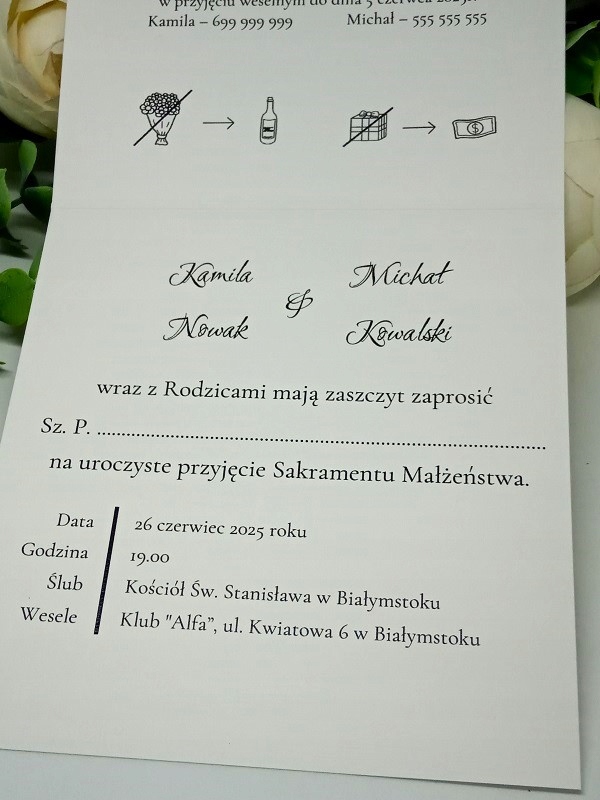 w przyjęciu weselnym do dnia 5 czerwca 2025r.
Kamila – 699 999 999 Michał – 555 555 555
Kamila Michał
&
Nowak Kowalski
wraz z Rodzicami mają zaszczyt zaprosić
Sz. P. ..........................................................................................
na uroczyste przyjęcie Sakramentu Małżeństwa.
Data 26 czerwiec 2025 roku
Godzina 19.00
Ślub Kościół Św. Stanisława w Białymstoku
Wesele Klub "Alfa”, ul. Kwiatowa 6 w Białymstoku